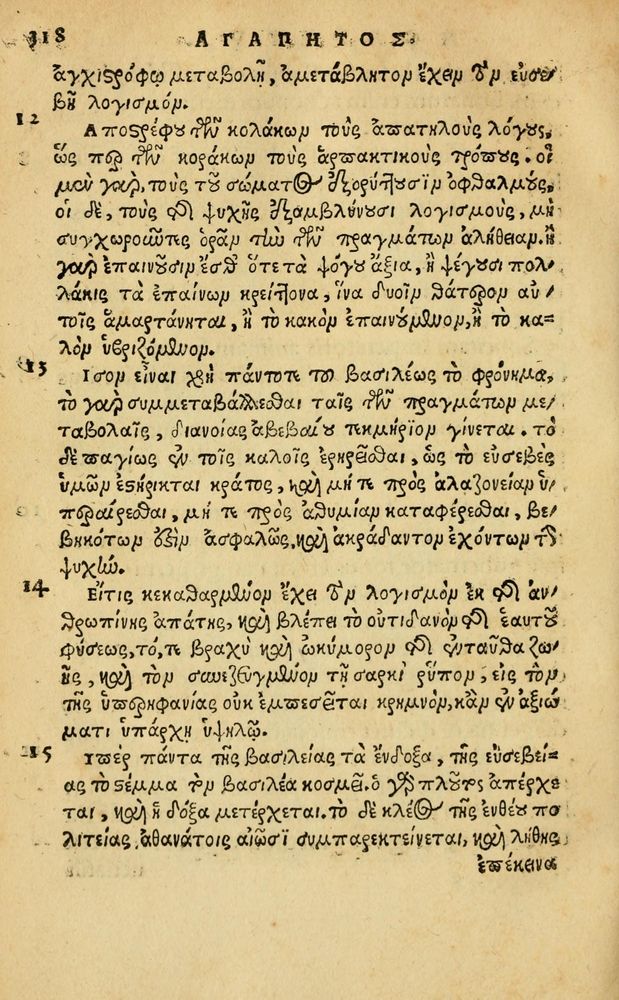 318 ΑΓΑΠΗΤΟΣ.
ἀγχιστρόφῳ μεταβολῇ, ἀμετάβλητον ἔχειν τὸν εὐσε-
βῆ λογισμόν.
12 Αποστρέφου τῶν κολάκων τοὺς ἀπατηλοὺς λόγους,
ὥς περ τῶν κοράκων τοὺς ἁρπακτικοὺς τρόπους. οἱ
μὲν γὰρ, τοὺς τοῦ σώματος ἐξορύττουσιν ὀφθαλμούς,
οἱ δὲ, τοὺς τῆς ψυχῆς ἐξαμβλύνουσι λογισμοὺς, μὴ
συγχωροῦντες ὁρᾶν τὴν τῶν πραγμάτων ἀλήθειαν. ἢ
γὰρ ἐπαινοῦσιν ἔσθ' ὅτε τὰ ψόγου ἄξια, ἢ ψέγουσι πολ-
λάκις τὰ ἐπαίνων κρείττονα, ἵνα δυοῖν θάτερον αὐ-
τοῖς ἁμαρτάνηται, ἢ τὸ κακὸν ἐπαινούμενον, ἢ τὸ κα-
λὸν ὑβριζόμενον.
13 Ισον εἶναι χρὴ πάντοτε τοῦ βασιλέως τὸ φρόνημα,
τὸ γὰρ συμμεταβάλλεσθαι ταῖς τῶν πραγμάτων με-
ταβολαῖς, διανοίας ἀβεβαίου τεκμήριον γίνεται. τὸ
δὲ παγίως ἐν τοῖς καλοῖς ἐρηρεῖσθαι, ὡς τὸ εὐσεβὲς
ὑμῶν ἐστήρικται κράτος, καὶ μή τε πρὸς ἀλαζονείαν ὑ-
περαίρεσθαι, μή τε πρὸς ἀθυμίαν καταφέρεσθαι, βε-
βηκότων ἐστὶν ἀσφαλῶς, καὶ ἀκράδαντον ἐχόντων τὴν
ψυχήν.
14 Εἴτις κεκαθαρμένον ἔχει τὸν λογισμὸν ἐκ τῆς ἀν-
θρωπίνης ἀπάτης, καὶ βλέπει τὸ οὐτιδανὸν τῆς ἑαυτοῦ
φύσεως, τό, τε βραχὺ καὶ ὠκύμορον τῆς ἐνταῦθα ζω-
ῆς, καὶ τὸν συνεζευγμένον τῇ σαρκὶ ῥύπον, εἰς τὸν
τῆς ὑπερηφανίας οὐκ ἐμπεσεῖται κρημνὸν, κἂν ἐν ἀξιώ-
ματι ὑπάρχῃ ὑψηλῷ.
15 Υπὲρ πάντα τῆς βασιλείας τὰ ἔνδοξα, τῆς εὐσεβεί-
ας τὸ στέμμα τὸν βασιλέα κοσμεῖ. ὁ γὰρ πλοῦτος ἀπέρχε-
ται, καὶ ἡ δόξα μετέρχεται. τὸ δὲ κλέος τῆς ἐνθέου πο-
λιτείας, ἀθανάτοις αἰῶσι συμπαρεκτείνεται, καὶ λήθης
ἐπέκεινα